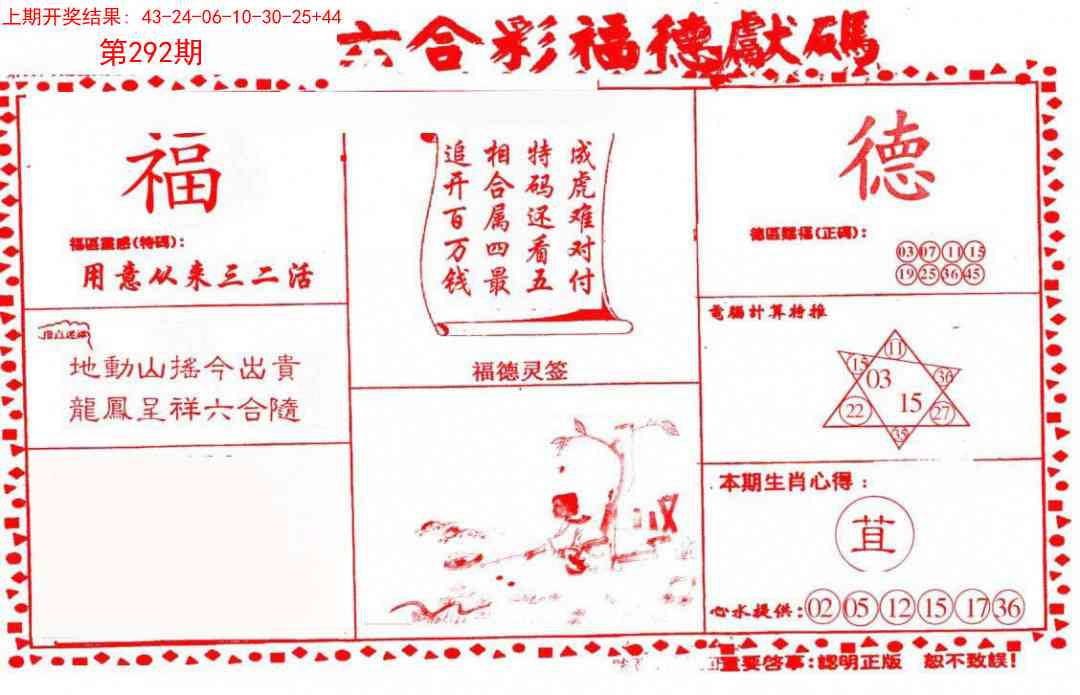 上期开奖结果: 43-24-06-10-30-25+44
第292期
六合彩福德獻碼
福
福區靈感(特碼):
用意从来三二活
地動山搖今出貴
龍鳳呈祥六合隨
成虎难对付
特码还看五
相合属四最
追开百万钱
福德灵签
德
德區賜福(正碼):
03 07 11 15
19 25 36 45
電腦計算特推
11
15
36
03
15
22
27
35
本期生肖心得:
苴
心水提供: 02 05 12 15 17 36
重要啓事:認明正版 恕不致誤!